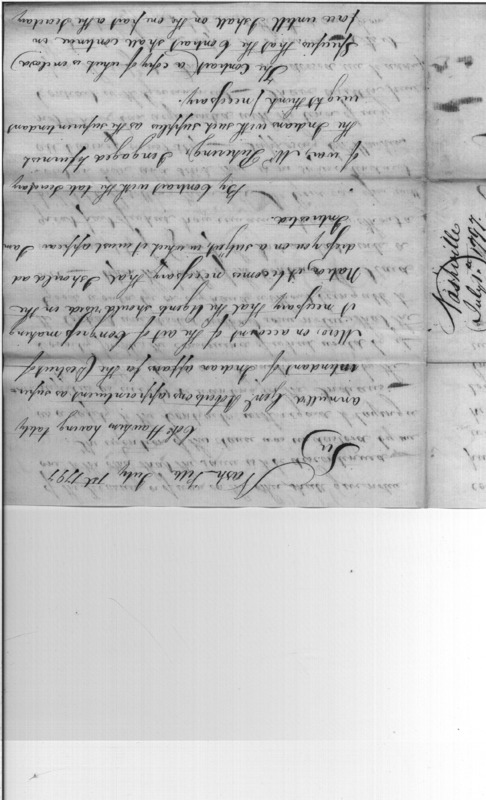 Nashville July 1st 1797
Sir
Colo Hawkins having lately
annulled Genl Robertsons appointment as super-
intendant of Indian affairs for the District of
Mero, on account of the act of Congress making
it necessary that the Agent should reside in the
Nation, it becomes necessary that I should ad
dress you on a subject, in which it must appear I am
Interested.
By Contract with the late Secretary
of war, Mr Pickering, I engaged to furnish
the Indians with such supplies as the superintendant
might think necessary.
The Contract (a copy of which is enclosed)
Specifies that the Contract shall continue in
force untill I shall on the one part or the Secretary
Nashville
July 1st 1797.